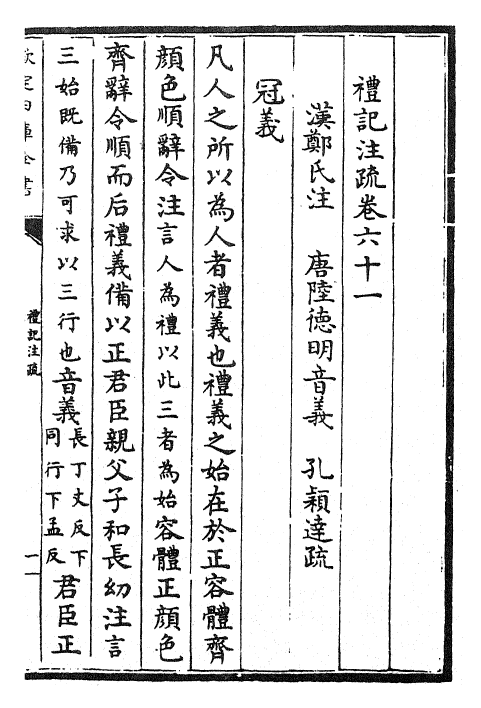 禮記注疏卷六十一
漢鄭氏注　唐陸德明音義　孔穎達疏
冠義
凡人之所以為人者禮義也禮義之始在於正容體齊
顏色順辭令注言人為禮以此三者為始容體正顏色
齊辭令順而后禮義備以正君臣親父子和長幼注言
三始既備乃可求以三行也音義長丁丈反下同行下孟反君臣正
欽定四庫全書
禮記注疏
一